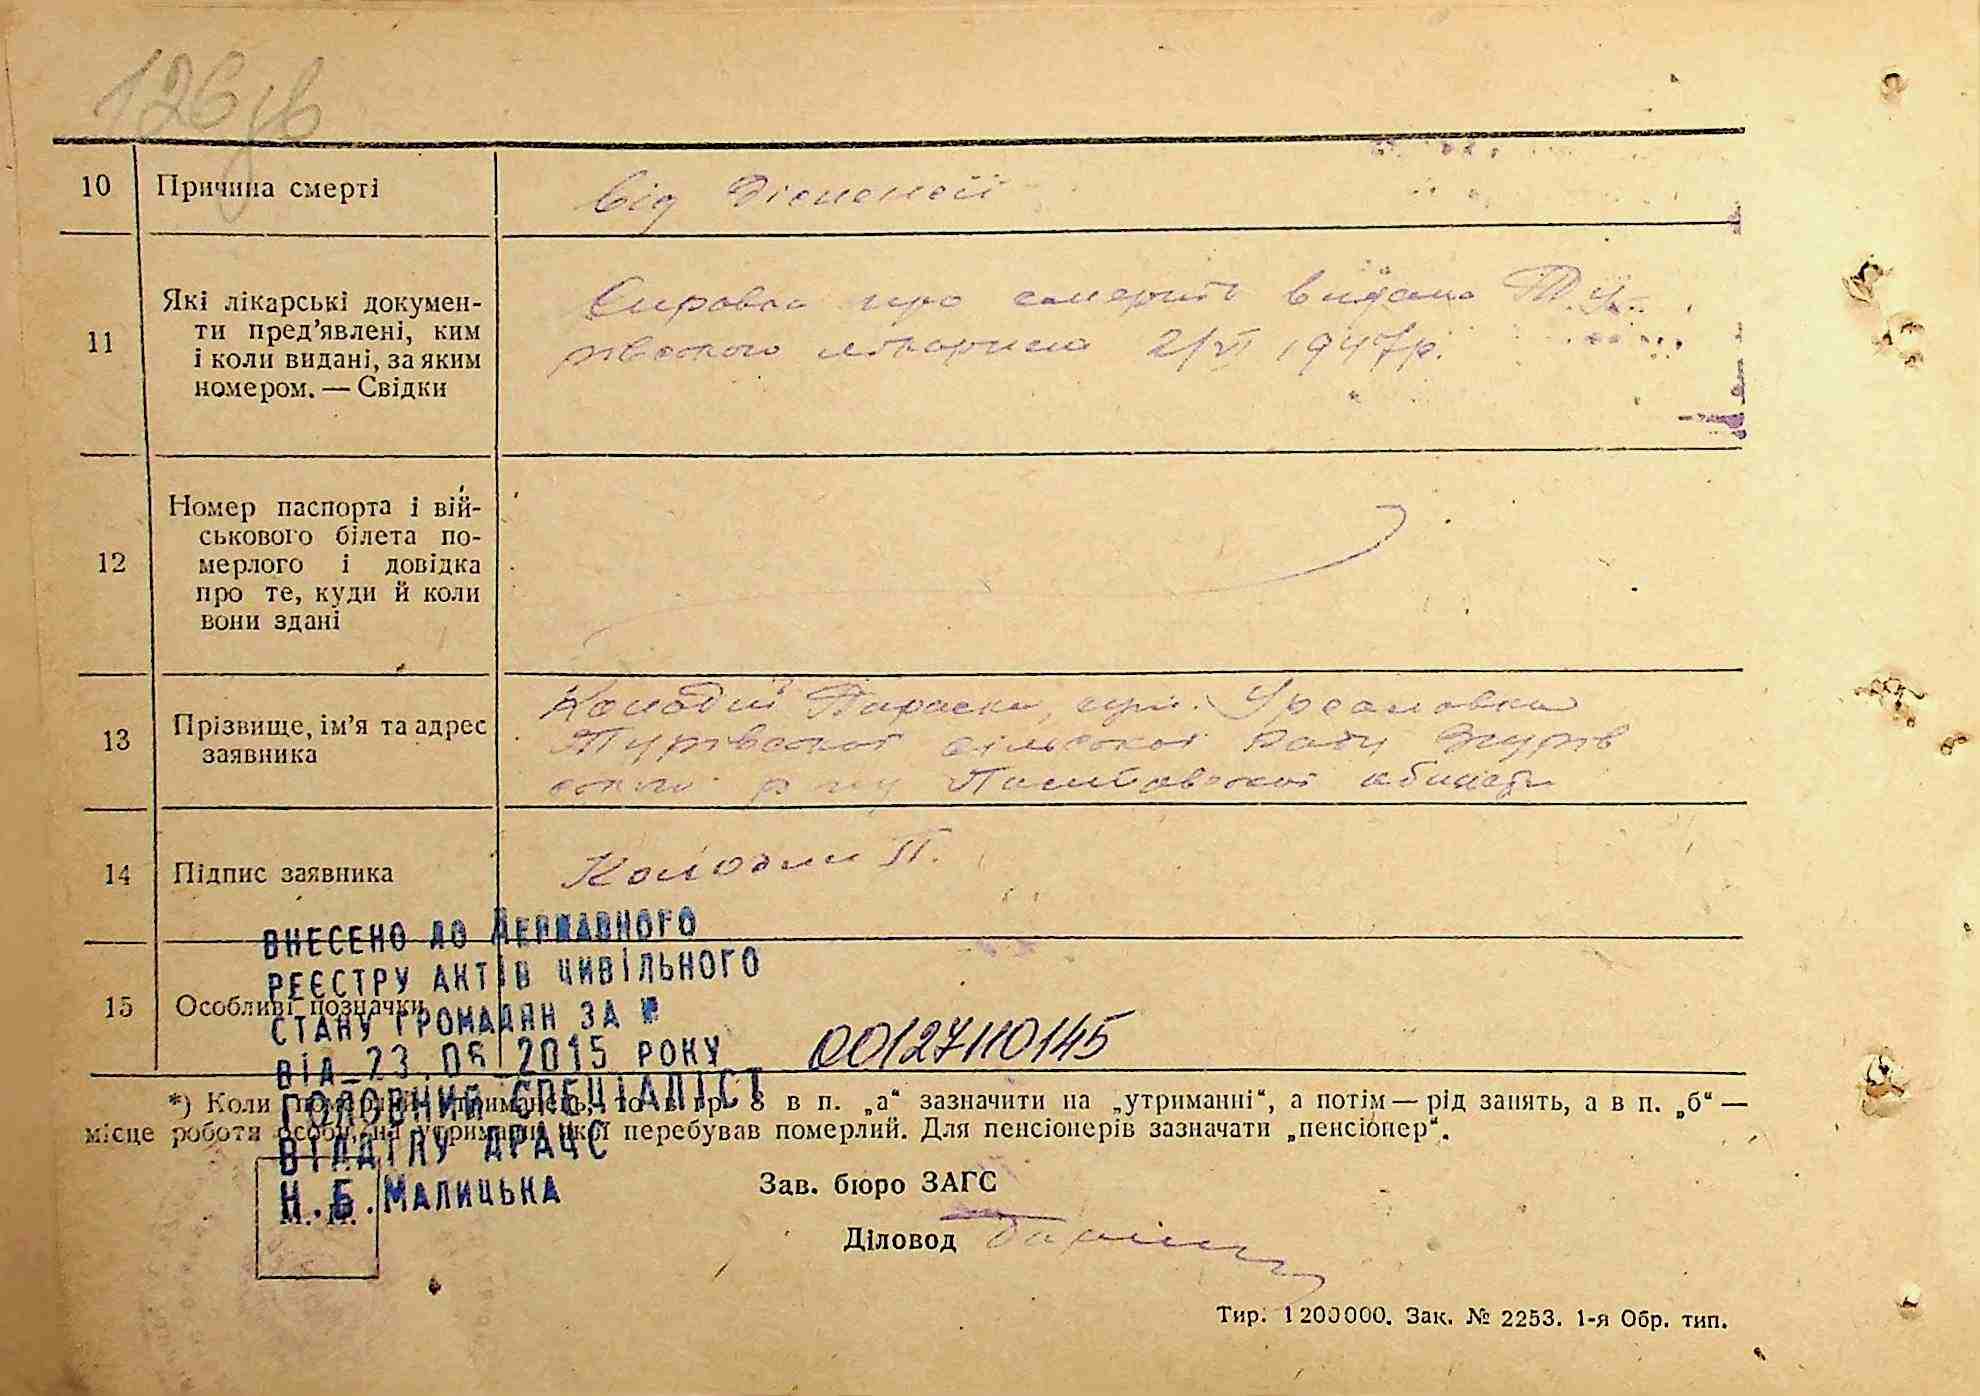 126 зв
10 Причина смерті
від Діспепсії
11 Які лікарські докумен-
ти пред’явлені, ким
і коли видані, за яким
номером. — Свідки
Справка про смерть видана Ту-
рівською лікарнею 2/VI 1947р.
12 Номер паспорта і вій-
ськового білета по-
мерлого і довідка
про те, куди й коли
вони здані
13 Прізвище, ім’я та адрес
заявника
Колодій Параска,
Турівської сільської Ради Згурів
ського р-ну Полтавської області
14 Підпис заявника
Колодій П.
15 Особливі позначки
ВНЕСЕНО ДО ДЕРЖАВНОГО
РЕЄСТРУ АКТІВ ЦИВІЛЬНОГО
СТАНУ ГРОМАДЯН ЗА №
ВІД 23.06 2015 РОКУ 00127110145
ГОЛОВНИЙ СПЕЦІАЛІСТ
ВІДДІЛУ ДРАЦС
Н.Б.МАЛИЦЬКА
*) Коли в п. „а“ зазначити на „утриманні“, а потім — рід занять, а в п. „б“ —
місце роботи особи, на утриманні якої перебував померлий. Для пенсіонерів зазначати „пенсіонер“.
М. П.
Зав. бюро ЗАГС
Діловод
Тир. 1200000. Зак. № 2253. 1-я Обр. тип.